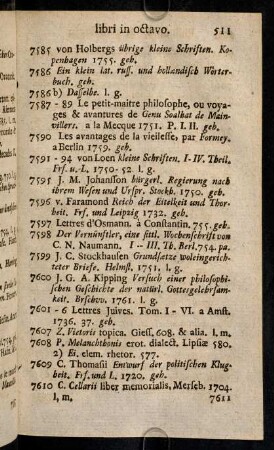 libri in octavo. 511
7585 von Holbergs übrige kleine Schriften. Ko-
penhagen 1755. geh.
7586 Ein klein lat. russ. und hollandisch Wörter-
buch. geh.
7586 b) Dasselbe. l. g.
7587 - 89 Le petit-maitre philosophe, ou voya-
ges & avantures de Genu Soalhat de Main-
villers. a la Mecque 1751. P. I. II. geh.
7590 Les avantages de la vieillesse, par Formey.
a Berlin 1759. geh.
7591 - 94 von Loen kleine Schriften. I-IV. Theil.
Frf. u. L. 1750 - 52. l. g.
7595 J. M. Johansson bürgerl. Regierung nach
ihrem Wesen und Urspr. Stockh. 1750. geh.
7596 v. Faramond Reich der Eitelkeit und Thor-
heit. Frf. und Leipzig 1732. geh.
7597 Lettres d'Osmann. à Constantin. 755. geh.
7598 Der Vernünftler, eine sittl. Wochenschrift von
C. N. Naumann. I - III. Th. Berl. 754. pa.
7599 J. C. Stockhausen Grundsætze woleingerich-
teter Briefe. Helmst. 1751. l. g.
7600 J. G. A. Kipping Versuch einer philosophi-
schen Geschichte der natürl. Gottesgelehrsam-
keit. Brschw. 1761. l. g.
7601 - 6 Lettres Juives. Tom. I - VI. a Amst.
1736. 37. geh.
7607 Z. Vietoris topica. Giess. 608. & alia. l. m.
7608 P. Melanchthonis erot. dialect. Lipsiæ 580.
2) Ei. elem. rhetor. 577.
7609 C. Thomasii Entwurf der politischen Klug-
heit. Frf. und L. 1720. geh.
7610 C. Cellarii liber memorialis, Merseb. 1704.
l. m. 7611